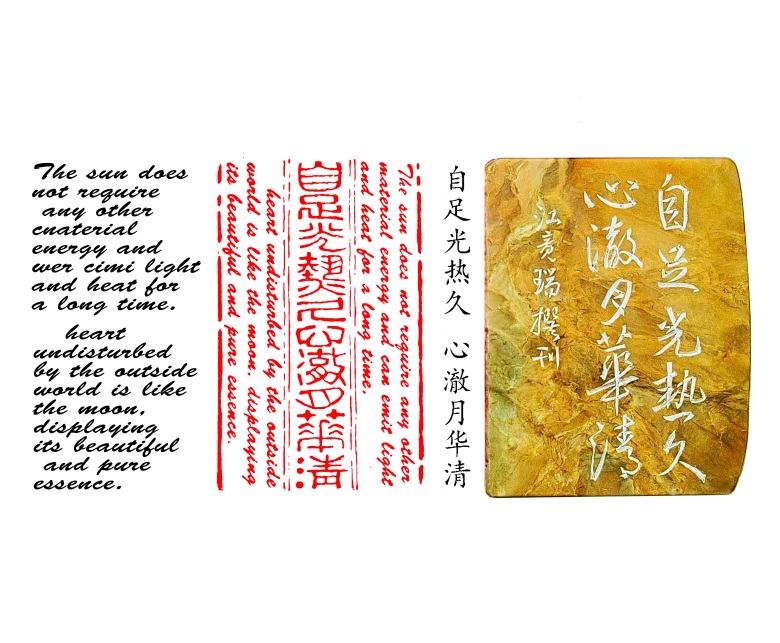 The sun does
not require
any other
cnaterial
energy and
wer cimi light
and heat for
a long time.
heart
undisturbed
by the outside
world is like
the moon,
displaying
its beautiful
and pure
essence.
The sun does not require any other
material energy and can emit light
and heat for a long time.
自足光热久心澈月华清
heart undisturbed by the outside
world is like the moon, displaying
its beautiful and pure essence.
自足光热久 心澈月华清
自足光热久
心澈月華清
江亮瑞撰刊